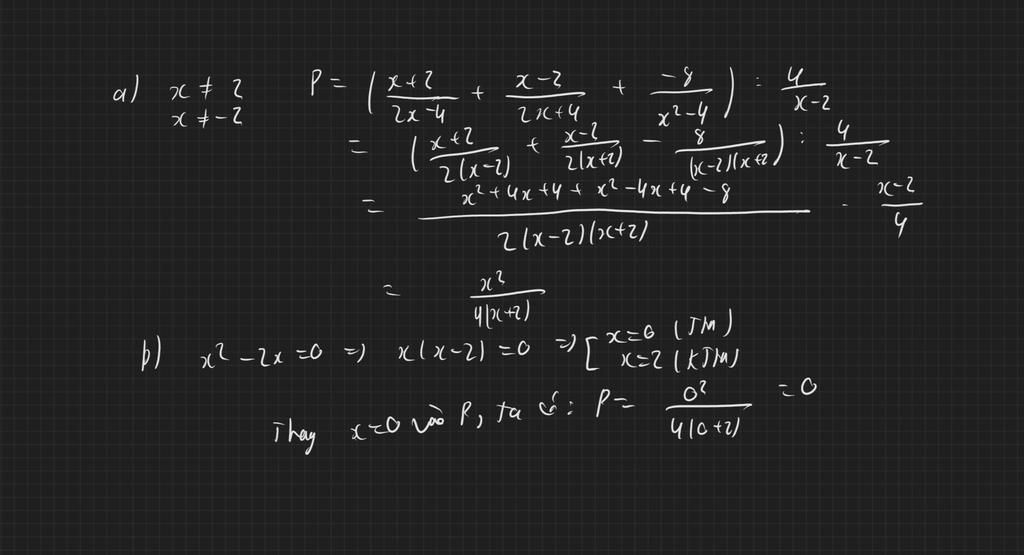 a) x ≠ 2 P = ( (x+2)/(2x-4) + (x-2)/(2x+4) + (-8)/(x²-4) ) : 4/(x-2)
x ≠ -2
= ( (x+2)/(2(x-2)) + (x-2)/(2(x+2)) - 8/((x-2)(x+2)) ) : 4/(x-2)
= (x²+4x+4+x²-4x+4-8)/(2(x-2)(x+2)) · (x-2)/4
= x²/(4(x+2))
b) x² - 2x = 0 => x(x-2) = 0 => [ x=0 (TM)
x=2 (KTM)
Thay x=0 vào P, ta có: P = 0²/(4(0+2)) = 0